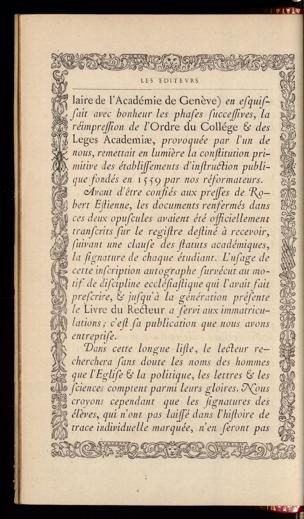 LES EDITEVRS
laire de l'Académie de Genève) en eſquiſ-
ſait avec bonheur les phaſes ſucceſſives, la
réimpreſſion de l'Ordre du Collége & des
Leges Academiæ, provoquée par l'un de
nous, remettait en lumière la conſtitution pri-
mitive des établiſſements d'inſtruction publi-
que fondés en 1559 par nos réformateurs.
Avant d'être confiés aux preſſes de Ro-
bert Eſtienne, les documents renfermés dans
ces deux opuſcules avaient été officiellement
tranſcrits ſur le regiſtre deſtiné à recevoir,
ſuivant une clauſe des ſtatuts académiques,
la ſignature de chaque étudiant. L'uſage de
cette inſcription autographe ſurvécut au mo-
tif de diſcipline eccléſiaſtique qui l'avait fait
preſcrire, & juſqu'à la génération préſente
le Livre du Recteur a ſervi aux immatricu-
lations; c'eſt ſa publication que nous avons
entrepriſe.
Dans cette longue liſte, le lecteur re-
cherchera ſans doute les noms des hommes
que l'Egliſe & la politique, les lettres & les
ſciences comptent parmi leurs gloires. Nous
croyons cependant que les ſignatures des
élèves, qui n'ont pas laiſſé dans l'hiſtoire de
trace individuelle marquée, n'en ſeront pas